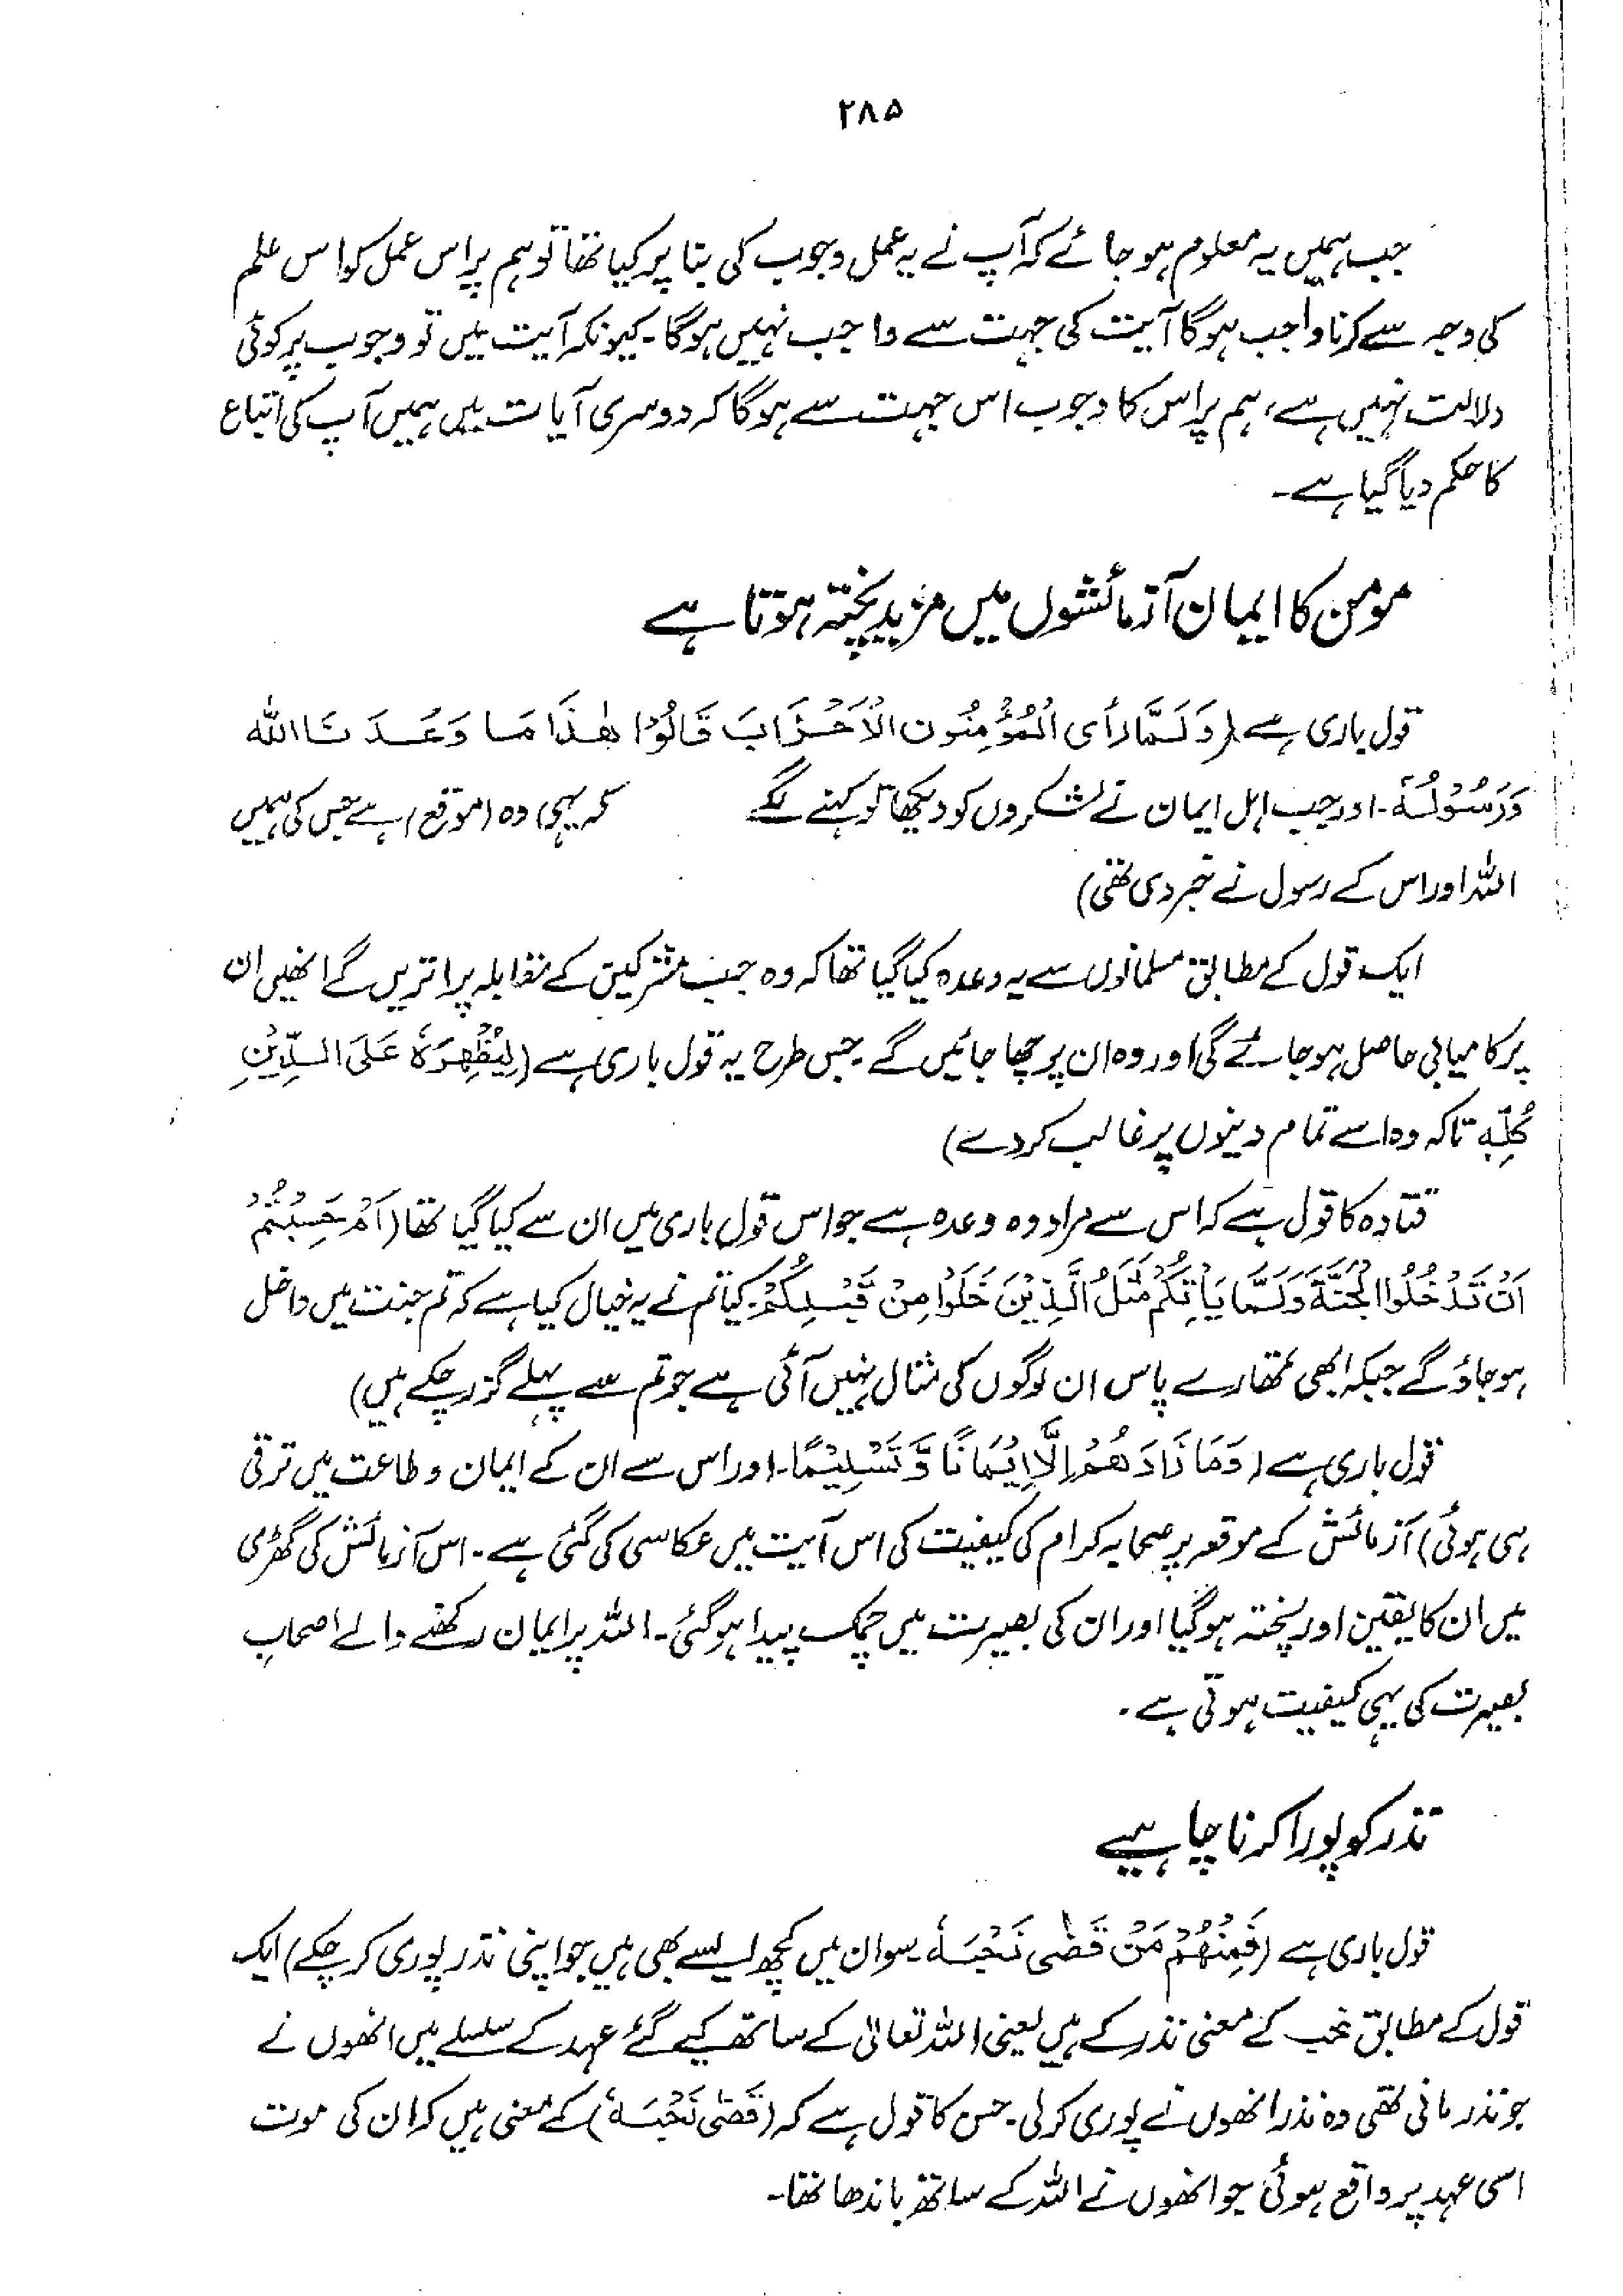 ۲۸۵
جب ہمیں یہ معلوم ہو جائے کہ آپ نے یہ عمل وجوب کی بنا پر کیا تھا تو ہم پر اس عمل کو اس علم
کی وجہ سے کرنا واجب ہوگا آیت کی جہت سے واجب نہیں ہوگا۔ کیونکہ آیت میں تو وجوب پر کوئی
دلالت نہیں ہے، ہم پر اس کا وجوب اس جہت سے ہوگا کہ دوسری آیات میں ہمیں آپ کی اتباع
کا حکم دیا گیا ہے۔
مومن کا ایمان آزمائشوں میں مزید پختہ ہوتا ہے
قول باری ہے (وَلَمَّا رَأَى الْمُؤْمِنُونَ الْأَحْزَابَ قَالُوْا هٰذَا مَا وَعَدَنَا اللّٰهُ
وَرَسُوْلُهٗ۔ اور جب اہل ایمان نے لشکروں کو دیکھا تو کہنے لگے کہ یہی وہ (موقع) ہے جس کی ہمیں
اللہ اور اس کے رسول نے خبر دی تھی)
ایک قول کے مطابق مسلمانوں سے یہ وعدہ کیا گیا تھا کہ وہ جب مشرکین کے مقابلہ پر اتریں گے انھیں ان
پر کامیابی حاصل ہو جائے گی اور وہ ان پر چھا جائیں گے۔ جس طرح یہ قول باری ہے (لِيُظْهِرَهٗ عَلَى الدِّيْنِ
كُلِّهٖ تاکہ وہ اسے تمام دینوں پر غالب کر دے)
قتادہ کا قول ہے کہ اس سے مراد وہ وعدہ ہے جو اس قول باری میں ان سے کیا گیا تھا (اَمْ حَسِبْتُمْ
اَنْ تَدْخُلُوا الْجَنَّةَ وَلَمَّا يَأْتِكُمْ مَثَلُ الَّذِيْنَ خَلَوْا مِنْ قَبْلِكُمْ۔ کیا تم نے یہ خیال کیا ہے کہ تم جنت میں داخل
ہو جاؤ گے جبکہ ابھی تمھارے پاس ان لوگوں کی مثال نہیں آئی ہے جو تم سے پہلے گزر چکے ہیں)
قول باری ہے (وَمَا زَادَهُمْ اِلَّا اِيْمَانًا وَّتَسْلِيْمًا۔ اور اس سے ان کے ایمان و طاعت میں ترقی
ہی ہوئی) آزمائش کے موقعہ پر صحابہ کرام کی کیفیت کی اس آیت میں عکاسی کی گئی ہے۔ اس آزمائش کی گھڑی
میں ان کا یقین اور پختہ ہو گیا اور ان کی بصیرت میں چمک پیدا ہو گئی۔ اللہ پر ایمان رکھنے والے اصحابِ
بصیرت کی یہی کیفیت ہوتی ہے۔
نذر کو پورا کرنا چاہیے
قول باری ہے (فَمِنْهُمْ مَنْ قَضٰى نَحْبَهٗ۔ سو ان میں کچھ ایسے بھی ہیں جو اپنی نذر پوری کر چکے) ایک
قول کے مطابق نحب کے معنی نذر کے ہیں یعنی اللہ تعالیٰ کے ساتھ کیے گئے عہد کے سلسلے میں انھوں نے
جو نذر مانی تھی وہ نذر انھوں نے پوری کر لی۔ حسن کا قول ہے کہ (قَضٰى نَحْبَهٗ) کے معنی ہیں کہ ان کی موت
اسی عہد پر واقع ہوئی جو انھوں نے اللہ کے ساتھ باندھا تھا۔